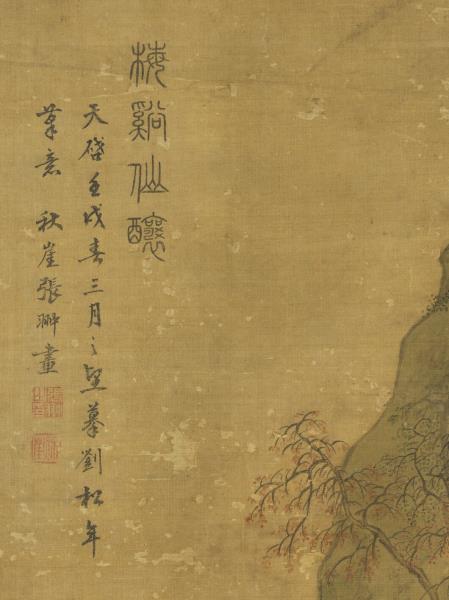 梅谿仙釀
天啓壬戌春三月之望摹劉松年
筆意 秋崖張翀畫